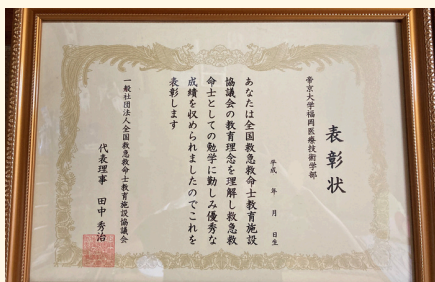 表彰状
帝京大学福岡医療技術学部
平成 年 月 日生
あなたは全国救急救命士教育施設
協議会の教育理念を理解し救急救
命士としての勉学に勤しみ優秀な
成績を収められましたのでこれを
表彰します
一般社団法人全国救急救命士教育施設協議会
代表理事 田中秀治